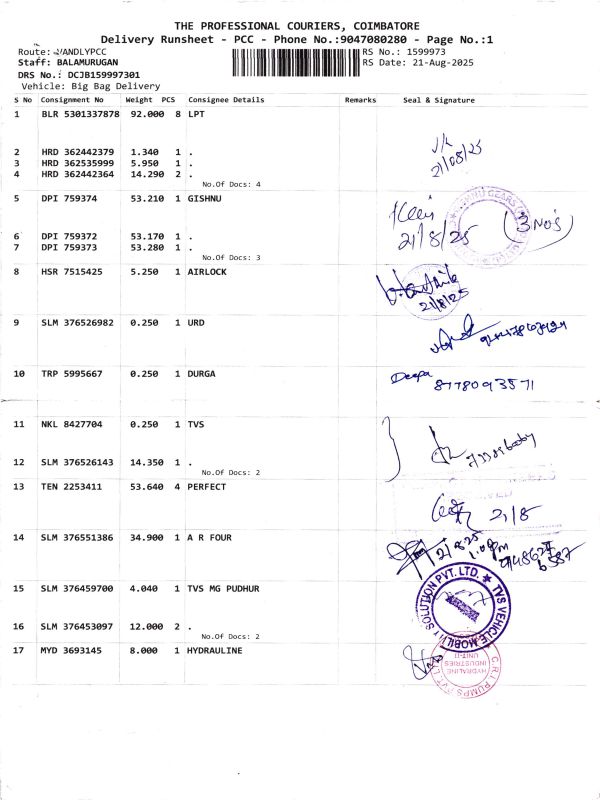 THE PROFESSIONAL COURIERS, COIMBATORE
Delivery Runsheet - PCC - Phone No.:9047080280 - Page No.:1
Route: VANDLYPCC RS No.: 1599973
Staff: BALAMURUGAN RS Date: 21-Aug-2025
DRS No.: DCJB159997301
Vehicle: Big Bag Delivery
S No Consignment No Weight PCS Consignee Details Remarks Seal & Signature
1 BLR 5301337878 92.000 8 LPT
2 HRD 362442379 1.340 1 .
3 HRD 362535999 5.950 1 .
4 HRD 362442364 14.290 2 .
21/08/25
No.Of Docs: 4
5 DPI 759374 53.210 1 GISHNU
(3 Nos)
6 DPI 759372 53.170 1 .
21/8/25
7 DPI 759373 53.280 1 .
No.Of Docs: 3
8 HSR 7515425 5.250 1 AIRLOCK
21/8/25
9 SLM 376526982 0.250 1 URD
10 TRP 5995667 0.250 1 DURGA
Deepa
8778093571
11 NKL 8427704 0.250 1 TVS
12 SLM 376526143 14.350 1 .
No.Of Docs: 2
13 TEN 2253411 53.640 4 PERFECT
21/8
14 SLM 376551386 34.900 1 A R FOUR
15 SLM 376459700 4.040 1 TVS MG PUDHUR
TVS VEHICLE MOBILITY SOLUTION PVT. LTD.
16 SLM 376453097 12.000 2 .
No.Of Docs: 2
17 MYD 3693145 8.000 1 HYDRAULINE
C.R.I. PUMPS PVT. LTD
HYDRALINE
INDUSTRIES
UNIT-II